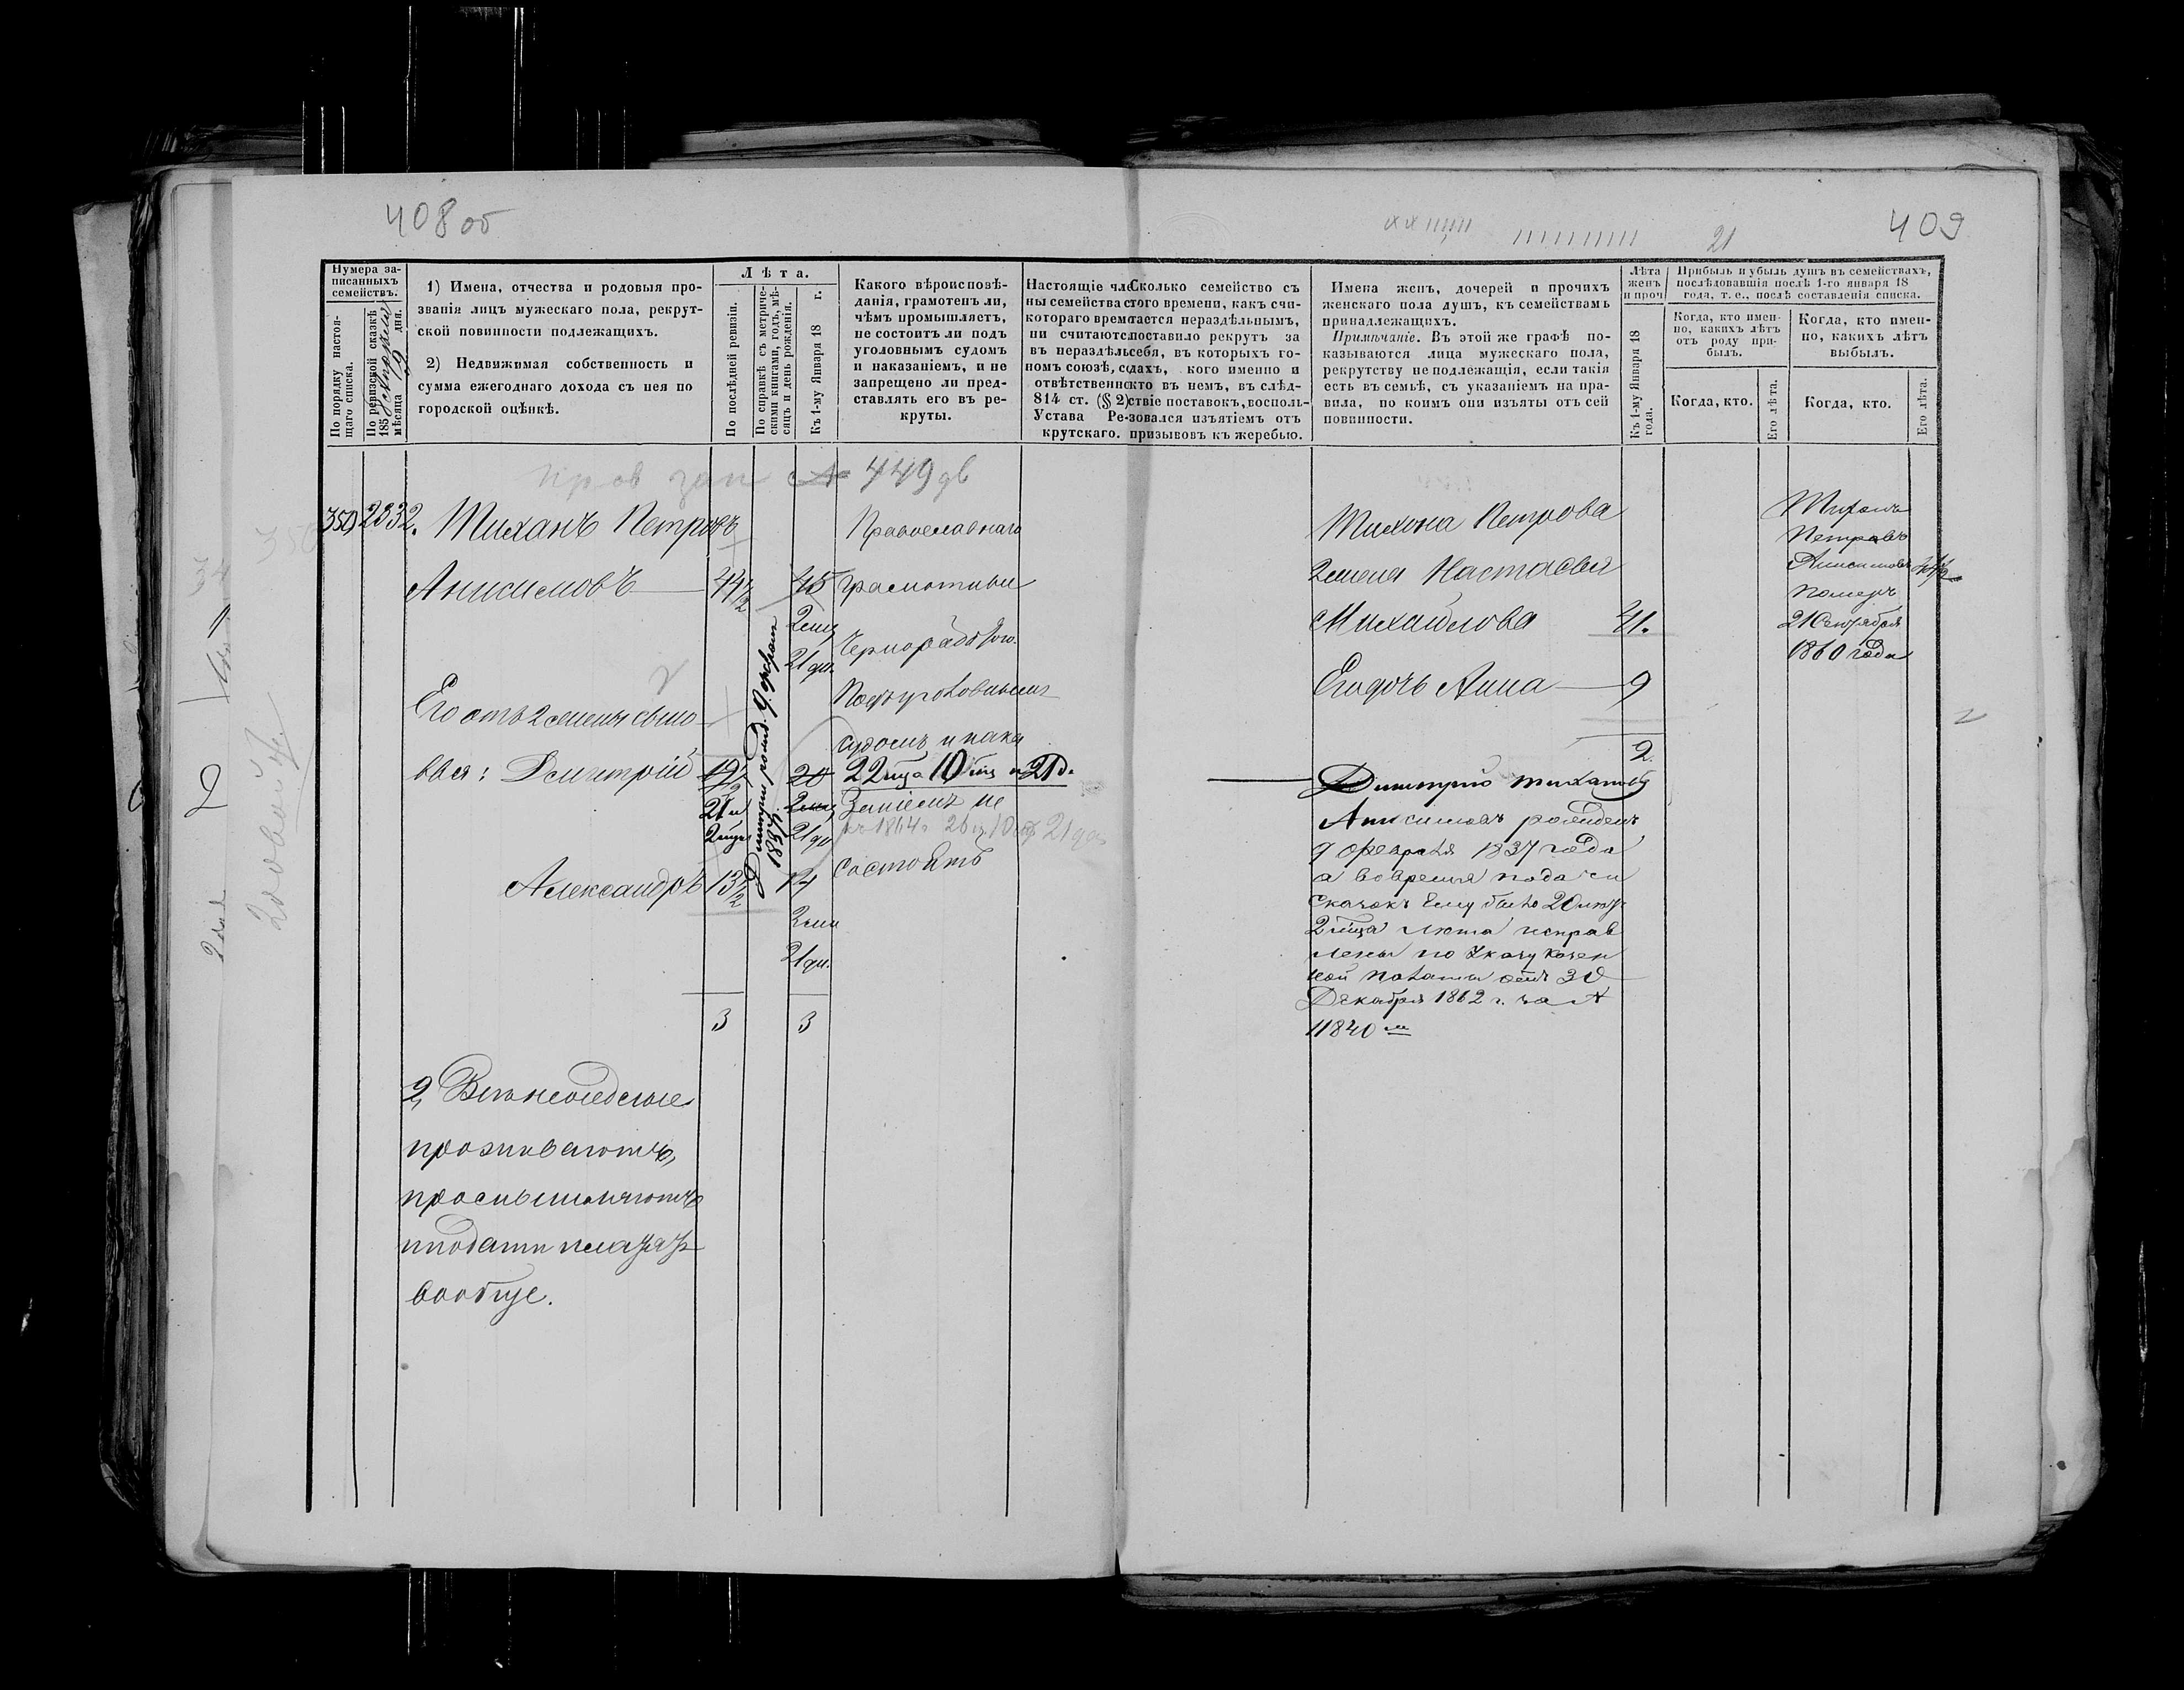 408 об
409
21
Нумера за-
писанныхъ
семействъ.
По порядку настоя-
щаго списка.
По ревизской сказкѣ
185 г.
мѣсяца 19 дня.
1) Имена, отчества и родовыя про-
званія лицъ мужескаго пола, рекрут-
ской повинности подлежащихъ.
2) Недвижимая собственность и
сумма ежегоднаго дохода съ нея по
городской оцѣнкѣ.
Лѣта.
По послѣдней ревизіи.
По справкѣ съ метриче-
скими книгами, годъ, мѣ-
сяцъ и день рожденія.
Къ 1-му Января 18 г.
Какого вѣроисповѣ-
данія, грамотенъ ли,
чѣмъ промышляетъ,
не состоитъ ли подъ
уголовнымъ судомъ
и наказаніемъ, и не
запрещено ли пред-
ставлять его въ ре-
круты.
Настоящіе чле
ны семейства с
котораго врем
ни считаютс
въ нераздѣль
номъ союзѣ, с
отвѣтственн
814 ст. (§ 2)
Устава Ре-
крутскаго.
Сколько семейство съ
того времени, какъ счи-
тается нераздѣльнымъ,
поставило рекрутъ за
себя, въ которыхъ го-
дахъ, кого именно и
кто въ немъ, въ слѣд-
ствіе поставокъ, восполь-
зовался изъятіемъ отъ
призывовъ къ жеребью.
Имена женъ, дочерей и прочихъ
женскаго пола душъ, къ семействамъ
принадлежащихъ.
Примѣчаніе. Въ этой же графѣ по-
казываются лица мужескаго пола,
рекрутству не подлежащія, если такія
есть въ семьѣ, съ указаніемъ на пра-
вила, по коимъ они изъяты отъ сей
повинности.
Лѣта
женъ
и проч
Къ 1-му Января 18
года.
Прибыль и убыль душъ въ семействахъ,
послѣдовавшія послѣ 1-го января 18
года, т. е., послѣ составленія списка.
Когда, кто имен-
но, какихъ лѣтъ
отъ роду при-
былъ.
Когда, кто имен-
но, какихъ лѣтъ
выбылъ.
Когда, кто.
Его лѣта.
Когда, кто.
Его лѣта.
449 дв
350 2832. Тиханъ Петровъ
Анисимовъ 44 1/2 45
2 мц
21 дн.
Его отъ 2 жены сыно
вья: Дмитрій 19 1/2 20
21 и
2 мца
2 мц
21 дн
Дмитрий рожд. 9 февраля
1837 г.
Александръ 13 1/2 14
2 мц
21 дн.
3 3
Православнаго
грамотны
Чернорабочаго.
Подъ уголовнымъ
судомъ и нака
22 года 10 мц и 21 д.
заніемъ не
къ 1864 г. 26 л 10 мц 21 дн
состоятъ
2,
проживаютъ,
промышляютъ
и подати платятъ
вообще.
Тихона Петрова
2 жена Настасья
Михайлова 41.
Его дочь Анна 9
2.
Димитрій Тихановъ
Анисимовъ рожденъ
9 Февраля 1837 года
а во время подачи
сказокъ Ему было 20 лѣтъ
2 мца лѣта исправ
лены по Указу Казен
ной Палаты отъ 30
Декабря 1862 г. за №
11840 м
Тиханъ
Петровъ
Анисимовъ
померъ
21 Сентября
1860 года